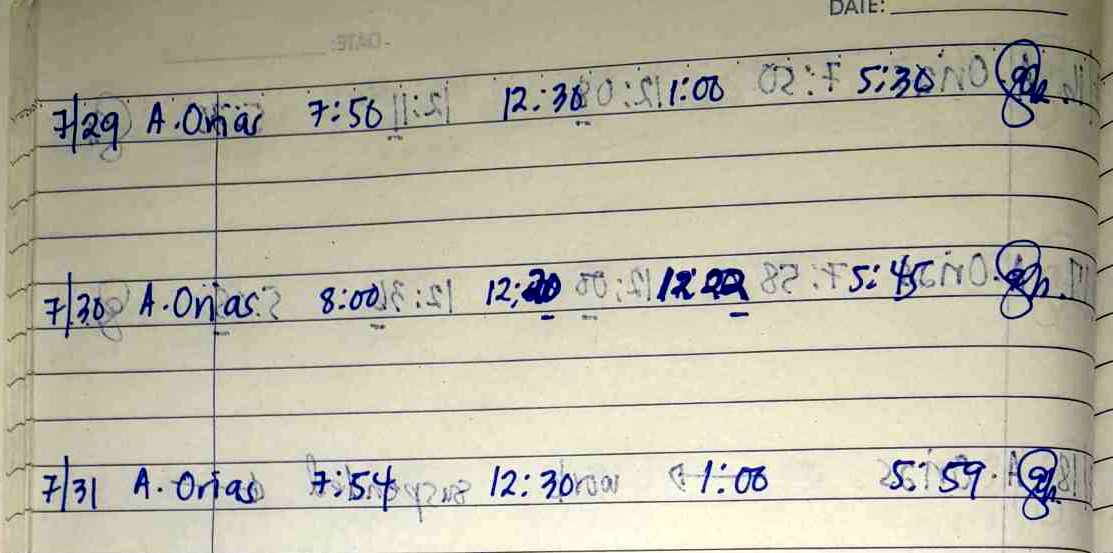 DATE:
7/29 A. Orias 7:50 12:30 1:00 5:30
7/30 A. Orias 8:00 12:20 12:22 5:45
7/31 A. Orias 7:54 12:30 1:00 5:59